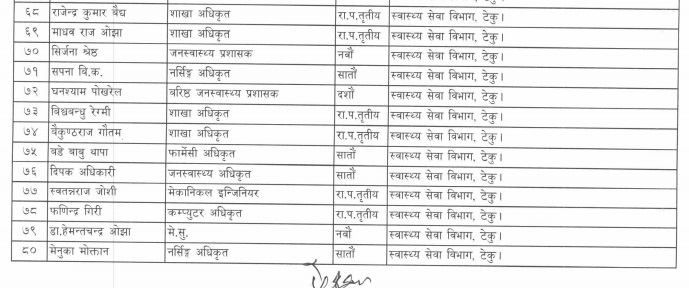 ६८ राजेन्द्र कुमार बैद्य शाखा अधिकृत रा.प.तृतीय स्वास्थ्य सेवा विभाग, टेकु।
६९ माधव राज ओझा शाखा अधिकृत रा.प.तृतीय स्वास्थ्य सेवा विभाग, टेकु।
७० सिर्जना श्रेष्ठ जनस्वास्थ्य प्रशासक नवौं स्वास्थ्य सेवा विभाग, टेकु।
७१ सपना वि.क. नर्सिङ्ग अधिकृत सातौं स्वास्थ्य सेवा विभाग, टेकु।
७२ घनश्याम पोखरेल बरिष्ठ जनस्वास्थ्य प्रशासक दशौं स्वास्थ्य सेवा विभाग, टेकु।
७३ विश्वबन्धु रेग्मी शाखा अधिकृत रा.प.तृतीय स्वास्थ्य सेवा विभाग, टेकु।
७४ बैकुण्ठराज गौतम शाखा अधिकृत रा.प.तृतीय स्वास्थ्य सेवा विभाग, टेकु।
७५ बडे बाबु थापा फार्मेसी अधिकृत सातौं स्वास्थ्य सेवा विभाग, टेकु।
७६ दिपक अधिकारी जनस्वास्थ्य अधिकृत सातौं स्वास्थ्य सेवा विभाग, टेकु।
७७ स्वतन्त्रराज जोशी मेकानिकल इन्जिनियर रा.प.तृतीय स्वास्थ्य सेवा विभाग, टेकु।
७८ फणिन्द्र गिरी कम्प्युटर अधिकृत रा.प.तृतीय स्वास्थ्य सेवा विभाग, टेकु।
७९ डा.हेमन्तचन्द्र ओझा मे.सु. नवौं स्वास्थ्य सेवा विभाग, टेकु।
८० मेनुका मोक्तान नर्सिङ्ग अधिकृत सातौं स्वास्थ्य सेवा विभाग, टेकु।